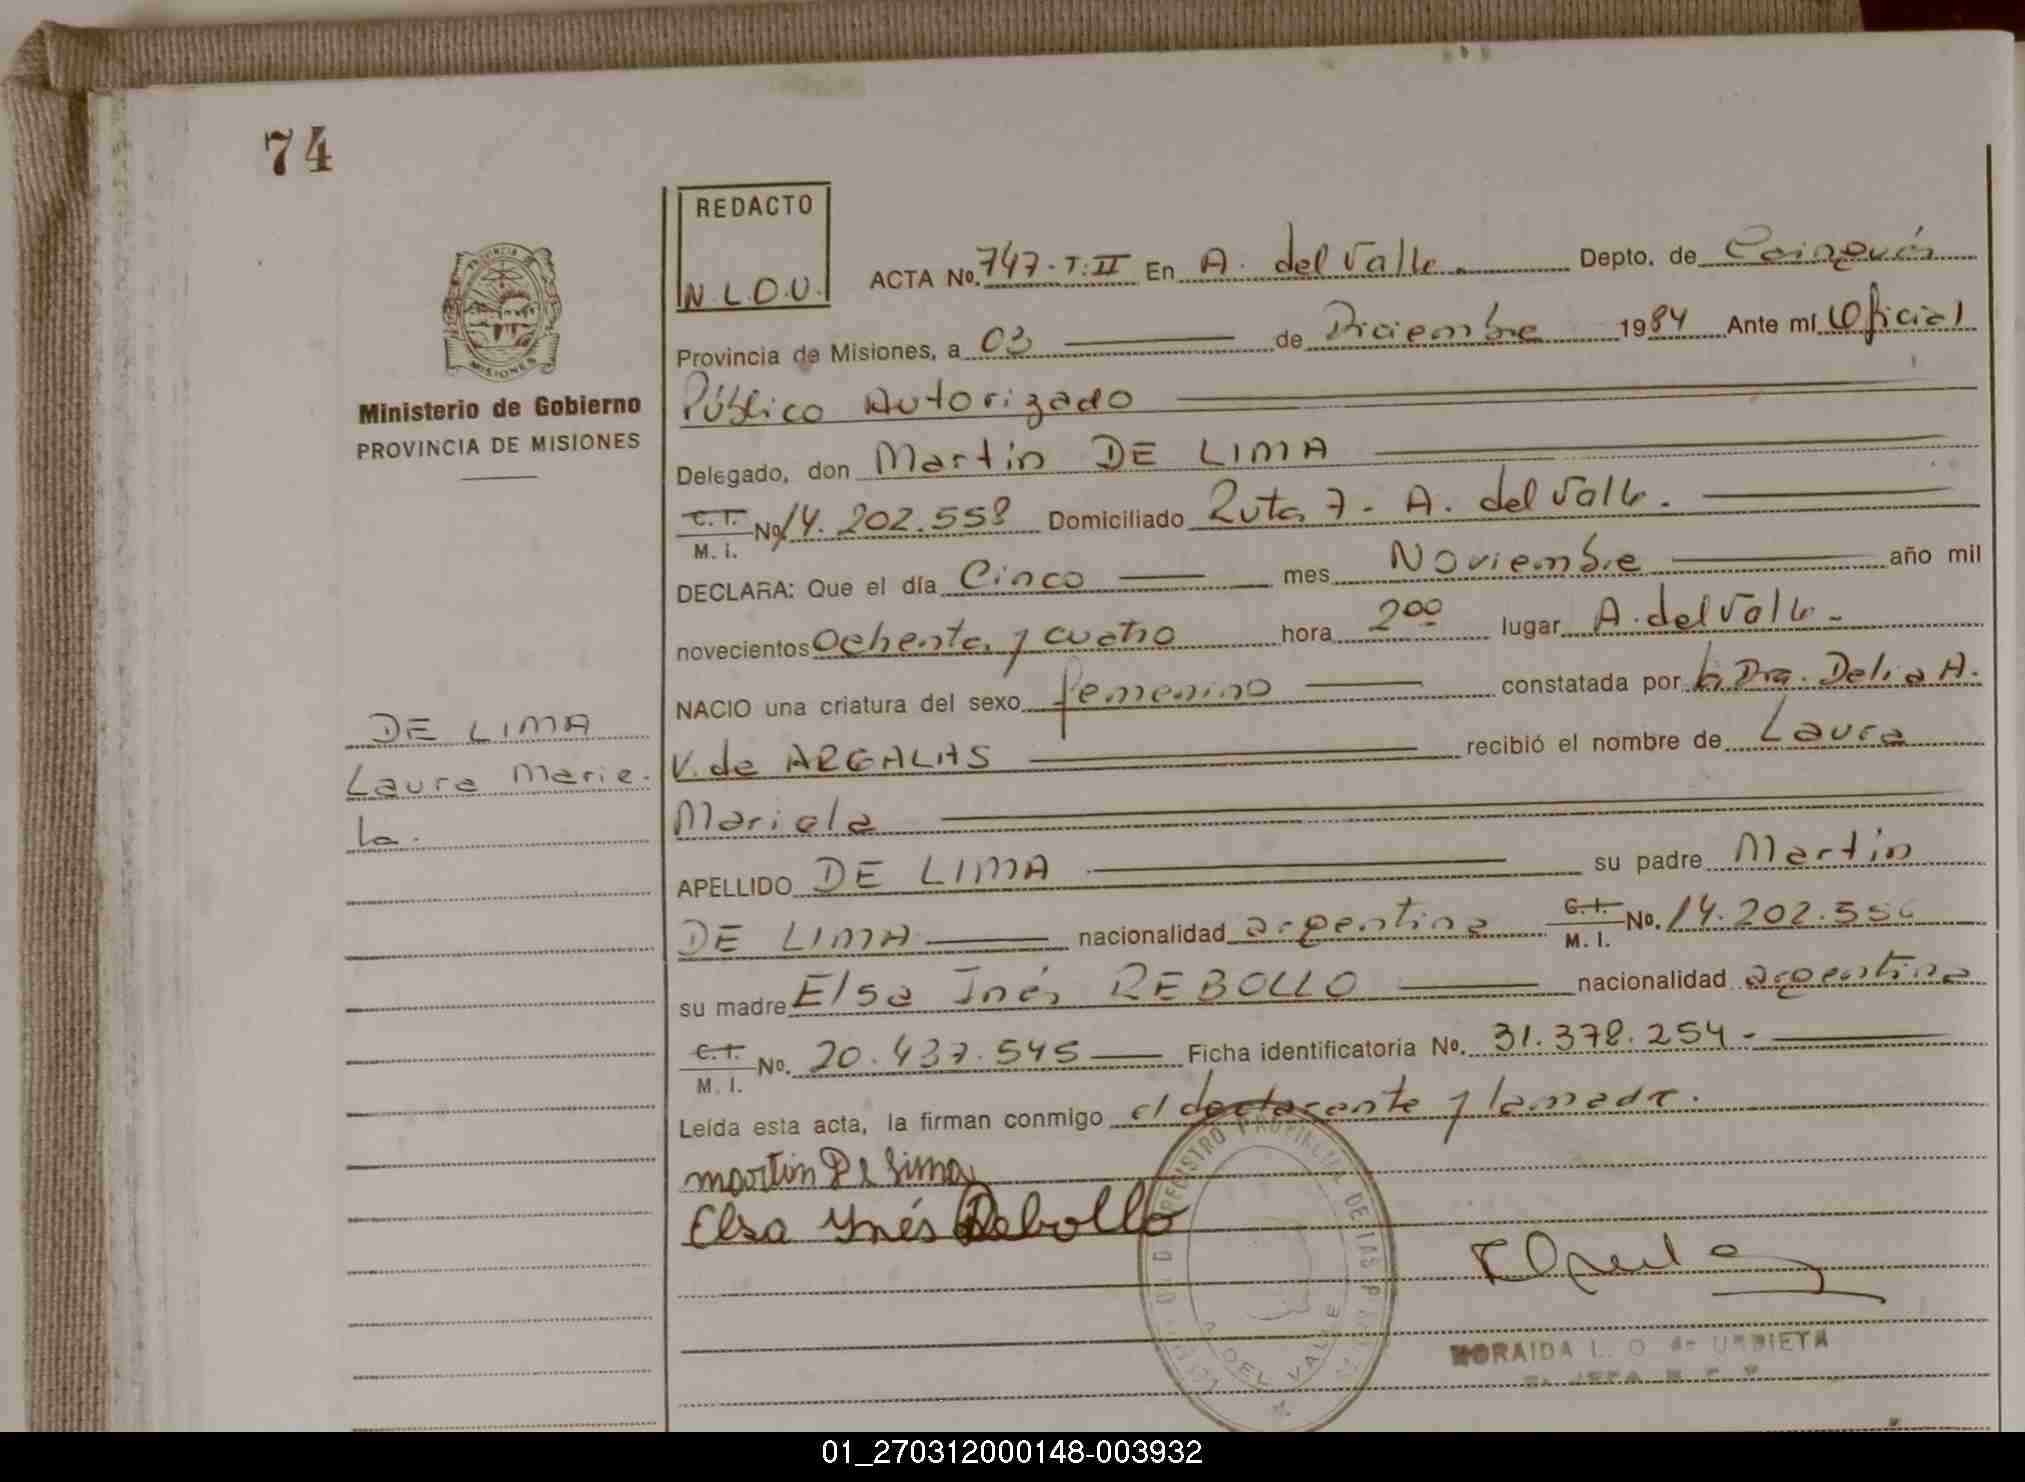 74
REDACTO
N.L.O.U.
ACTA No. 747-T:II En A. del Valle. Depto. de Cainguás
Provincia de Misiones, a 03 de Diciembre 1984 Ante mí Oficial
Público Autorizado
Delegado, don Martín DE LIMA
C.I. M. I. No. 14.202.558 Domiciliado Ruta 7 - A. del Valle.
DECLARA: Que el día Cinco mes Noviembre año mil
novecientos Ochenta y cuatro hora 200 lugar A. del Valle -
NACIO una criatura del sexo femenino constatada por la Dra. Delia A.
V. de ARGALAS recibió el nombre de Laura
Mariela
APELLIDO DE LIMA su padre Martín
DE LIMA nacionalidad argentina C.I. M. I. No. 14.202.55
su madre Elsa Inés REBOLLO nacionalidad argentina
C.I. M. I. No. 20.437.545 Ficha identificatoria No. 31.378.254 -
Leída esta acta, la firman conmigo el declarante y la madre.
martin De Lima
Elsa Ynés Rebollo
PROVINCIA DE
MISIONES
Ministerio de Gobierno
PROVINCIA DE MISIONES
DE LIMA
Laura Marie-
la.
REGISTRO PROVINCIAL DE LAS P
A. DEL VALLE
MORAIDA L. O. de URBIETA
JEFA
01_270312000148-003932